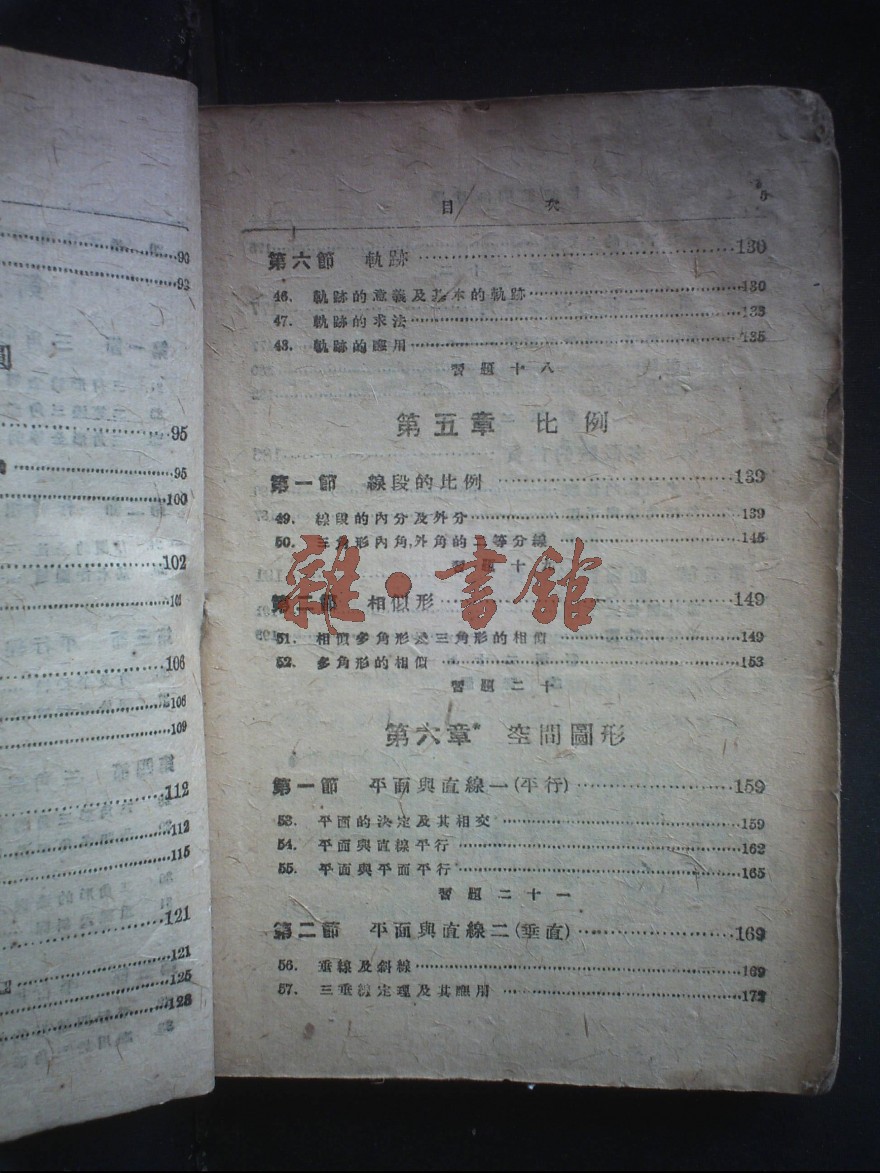 93
93
圓
95
95
100
102
101
106
106
109
112
112
115
121
121
125
128
目 次 5
第六節 軌跡 130
46. 軌跡的意義及基本的軌跡 130
47. 軌跡的求法 133
48. 軌跡的應用 135
習題十八
第五章 比例
第一節 線段的比例 139
49. 線段的內分及外分 139
50. 三角形內角,外角的二等分線 145
習題十九
雜·書舘
第二節 相似形 149
51. 相似多角形及三角形的相似 149
52. 多角形的相似 153
習題二十
第六章* 空間圖形
第一節 平面與直線一(平行) 159
53. 平面的決定及其相交 159
54. 平面與直線平行 162
55. 平面與平面平行 165
習題二十一
第二節 平面與直線二(垂直) 169
56. 垂線及斜線 169
57. 三垂線定理及其應用 172